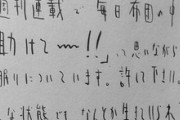 週刊連載で毎日布団の中
助けて〜〜!!」って思いながら
眠りについています。許して下さい。
な状態でもなんとか生きて